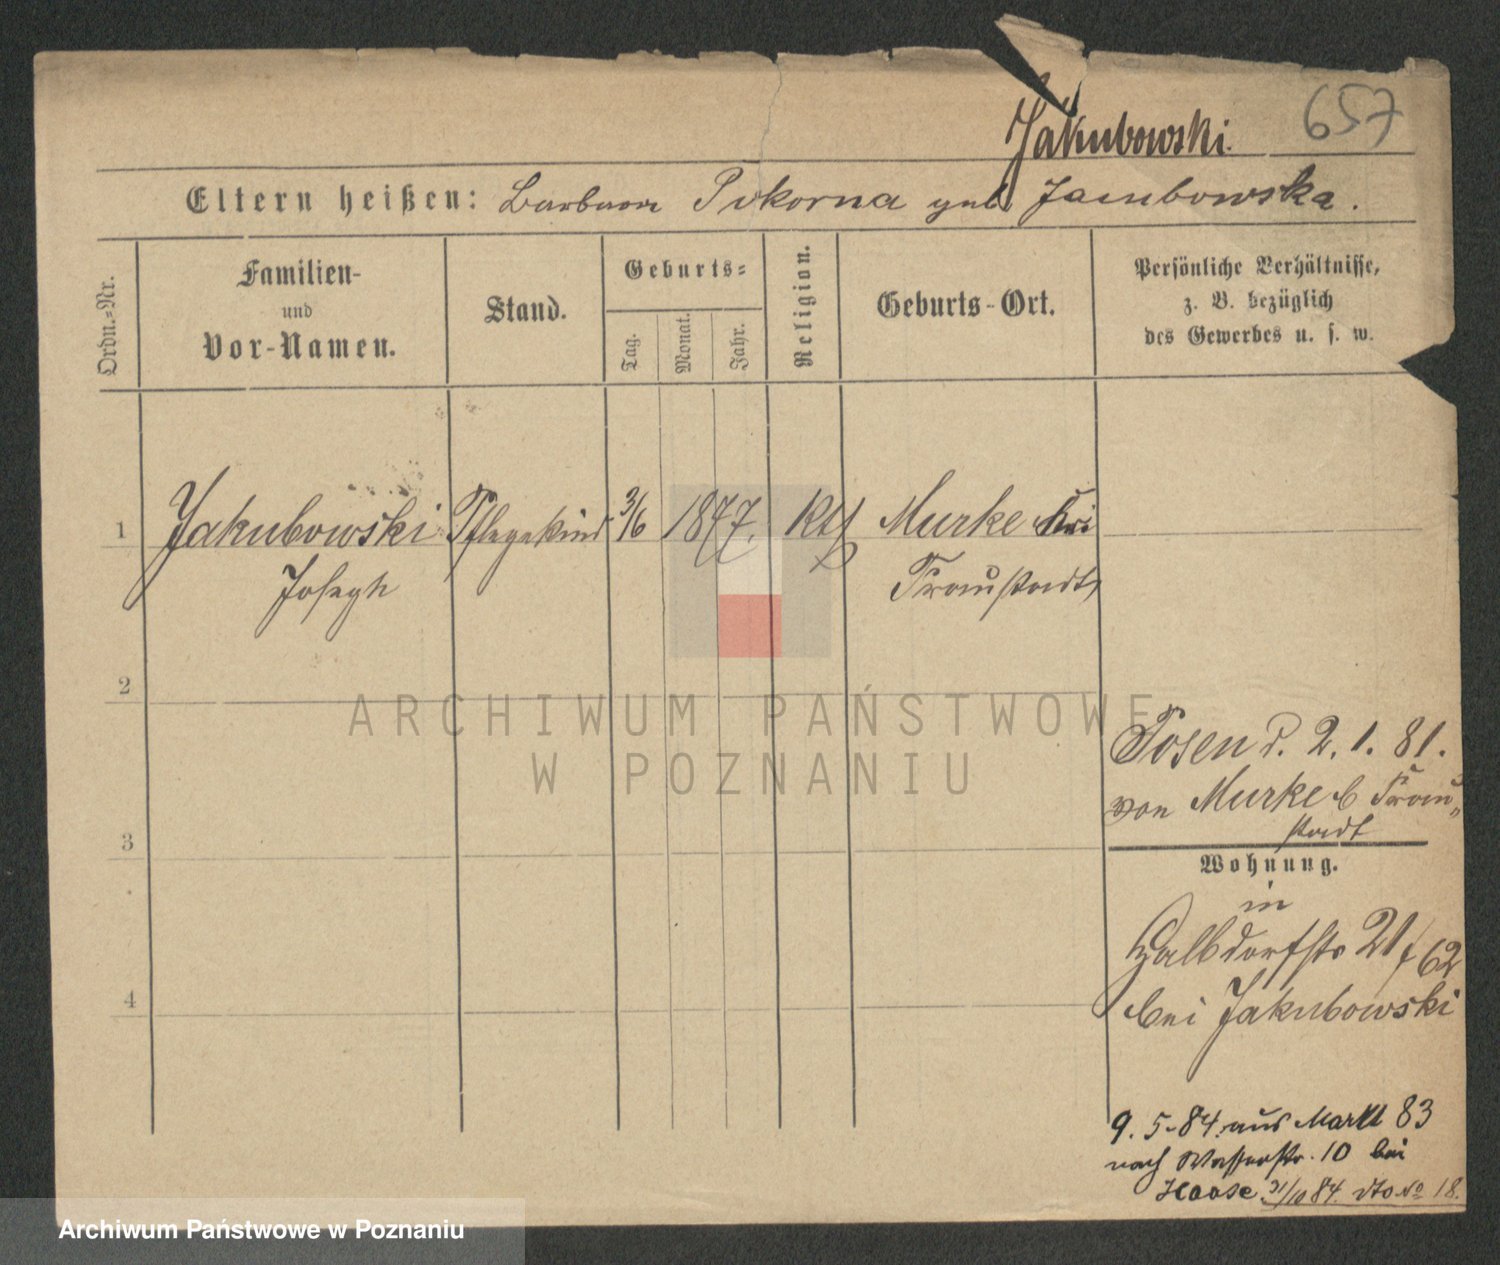 Jakubowski.
657
Eltern heißen: Barbara Pokorna geb. Jakubowska.
Ordn.-Nr.
Familien-
und
Vor-Namen.
Stand.
Geburts-
Tag.
Monat.
Jahr.
Religion.
Geburts-Ort.
Persönliche Verhältnisse,
z. B. bezüglich
des Gewerbes u. s. w.
1
Jakubowski
Joseph
Pflegekind
3/6
1877.
Kth
Murke bei
Fraustadt
2
3
4
Posen d. 2. 1. 81.
von Murke b Frau-
stadt
Wohnung.
in
Halbdorfstr 21/62
bei Jakubowski
9. 5. 84. aus Markt 83
nach Wasserstr. 10 bei
Haase 31/10 84. dto No 18.
ARCHIWUM PAŃSTWOWE
W POZNANIU
Archiwum Państwowe w Poznaniu